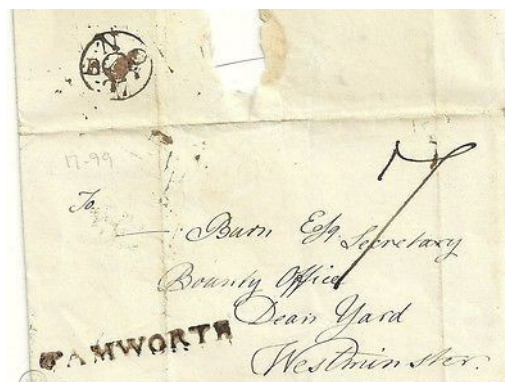 N
17-99
7
To
Burn Esq. Secretary
Bounty Office
Dean Yard
Westminster.
TAMWORTH